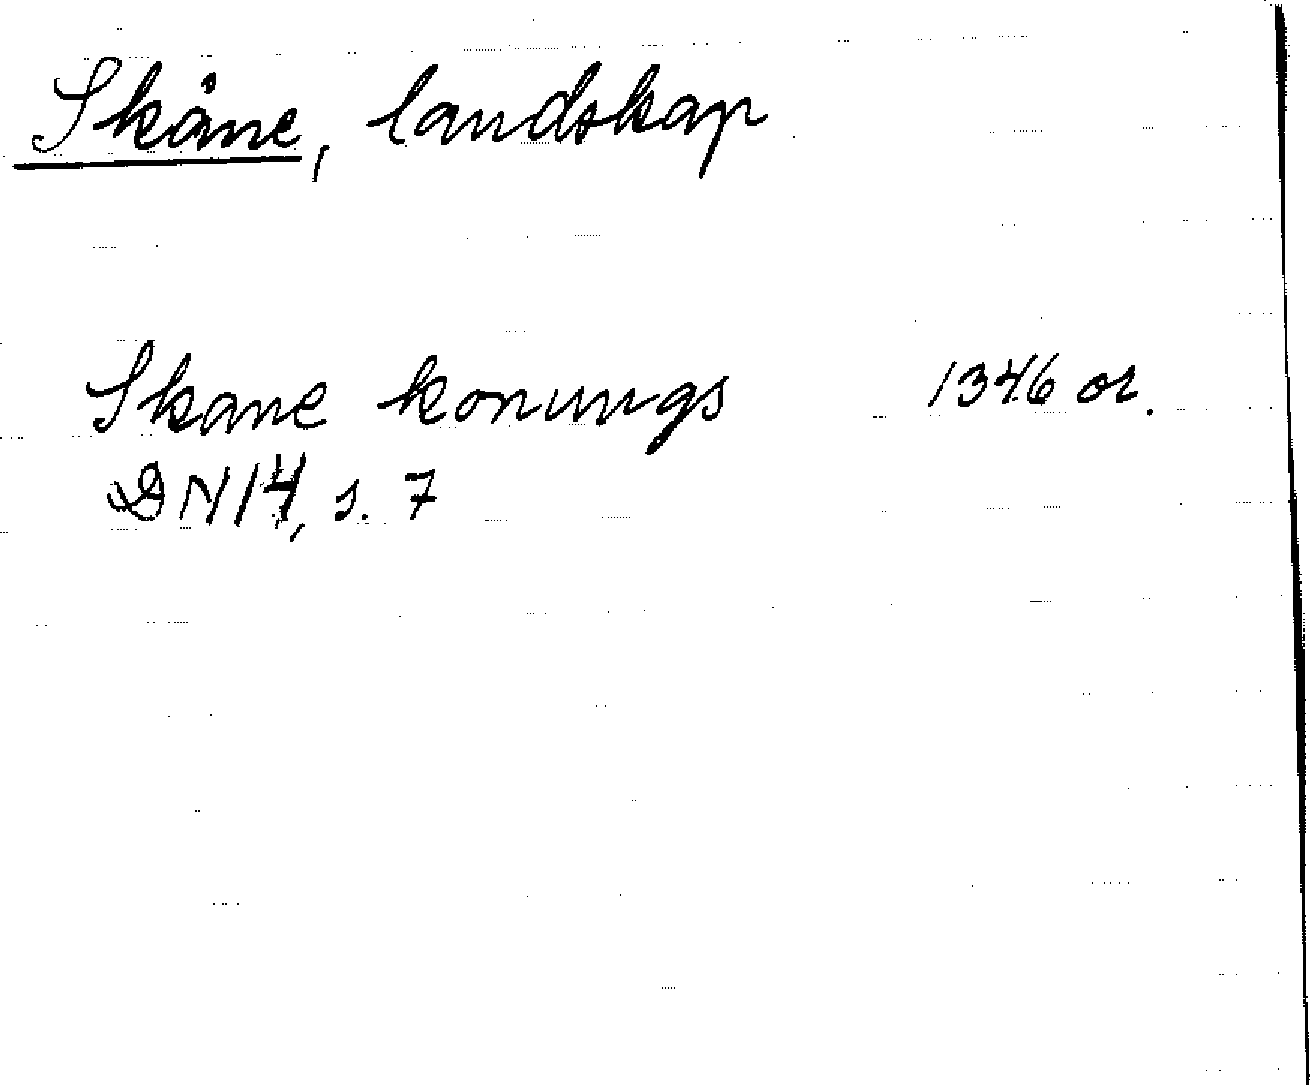 Skåne, landskap
Skane konungs 1346 or.
DN 14, s. 7